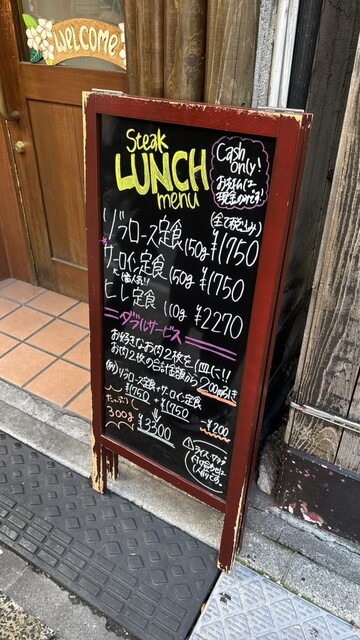 WELCOME
Steak
LUNCH
menu
Cash
only!
お支払いは
現金のみです!
(全て税込み)
リブロース定食 150g ¥1750
サーロイン定食 150g ¥1750
大人気!!
ヒレ定食 110g ¥2270
ダブルサービス
お好きなお肉2枚を1皿に!!
お肉2枚の合計金額から200円引き
(例)リブロース定食+サーロイン定食
¥1750 + ¥1750 -¥200
たっぷり
300g ¥3300
ライス、サラダ
付け合わせは
1人前です。